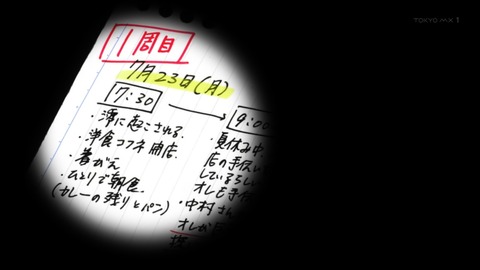 TOKYO MX 1
1周目
7月23日(月)
7:30 → 9:00
・澪に起こされる
・洋食コフネ開店
・着がえ
・ひとりで朝食
(カレーの残りとパン)
・夏休み中
店の手伝
しているらし
オレも手
・中村さ
オレが